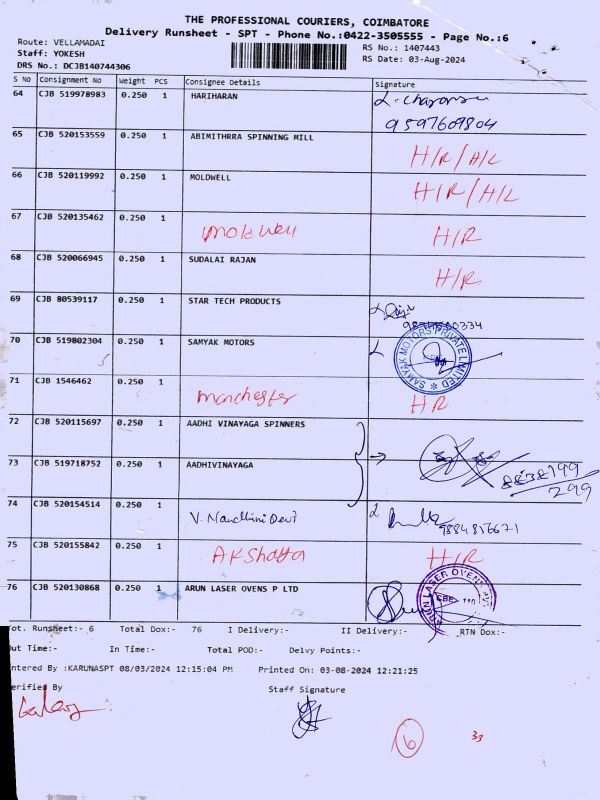 THE PROFESSIONAL COURIERS, COIMBATORE
Delivery Runsheet - SPT - Phone No.:0422-3505555 - Page No.:6
Route: VELLAMADAI
RS No.: 1407443
Staff: YOKESH
RS Date: 03-Aug-2024
DRS No.: DCJB140744306
S No Consignment No Weight PCS Consignee Details Signature
64 CJB 519978983 0.250 1 HARIHARAN
9597609804
65 CJB 520153559 0.250 1 ABIMITHRRA SPINNING MILL H/R/H/L
66 CJB 520119992 0.250 1 MOLDWELL H/R/H/L
67 CJB 520135462 0.250 1 H/R
68 CJB 520066945 0.250 1 SUDALAI RAJAN H/R
69 CJB 80539117 0.250 1 STAR TECH PRODUCTS
70 CJB 519802304 0.250 1 SAMYAK MOTORS SAMYAK MOTORS PRIVATE LIMITED
71 CJB 1546462 0.250 1 Manchester HR
72 CJB 520115697 0.250 1 AADHI VINAYAGA SPINNERS
73 CJB 519718752 0.250 1 AADHIVINAYAGA
8838199
299
74 CJB 520154514 0.250 1 V. Nandhini Devi
75 CJB 520155842 0.250 1 Akshaya H/R
76 CJB 520130868 0.250 1 ARUN LASER OVENS P LTD ARUN LASER OVENS
ot. Runsheet:- 6 Total Dox:- 76 I Delivery:- II Delivery:- RTN Dox:-
ut Time:- In Time:- Total POD:- Delvy Points:-
ntered By :KARUNASPT 08/03/2024 12:15:04 PM Printed On: 03-08-2024 12:21:25
erified By Staff Signature
6 33